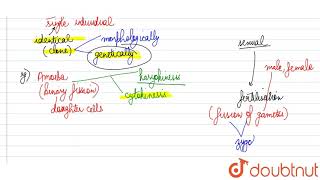 single individual
identical
(clone)
morphologically
genetically
eg) Amoeba
(binary fission)
daughter cells
karyokinesis
cytokinesis
sexual
male, female
fertilisation
(fusion of gametes)
zygo
doubtnut